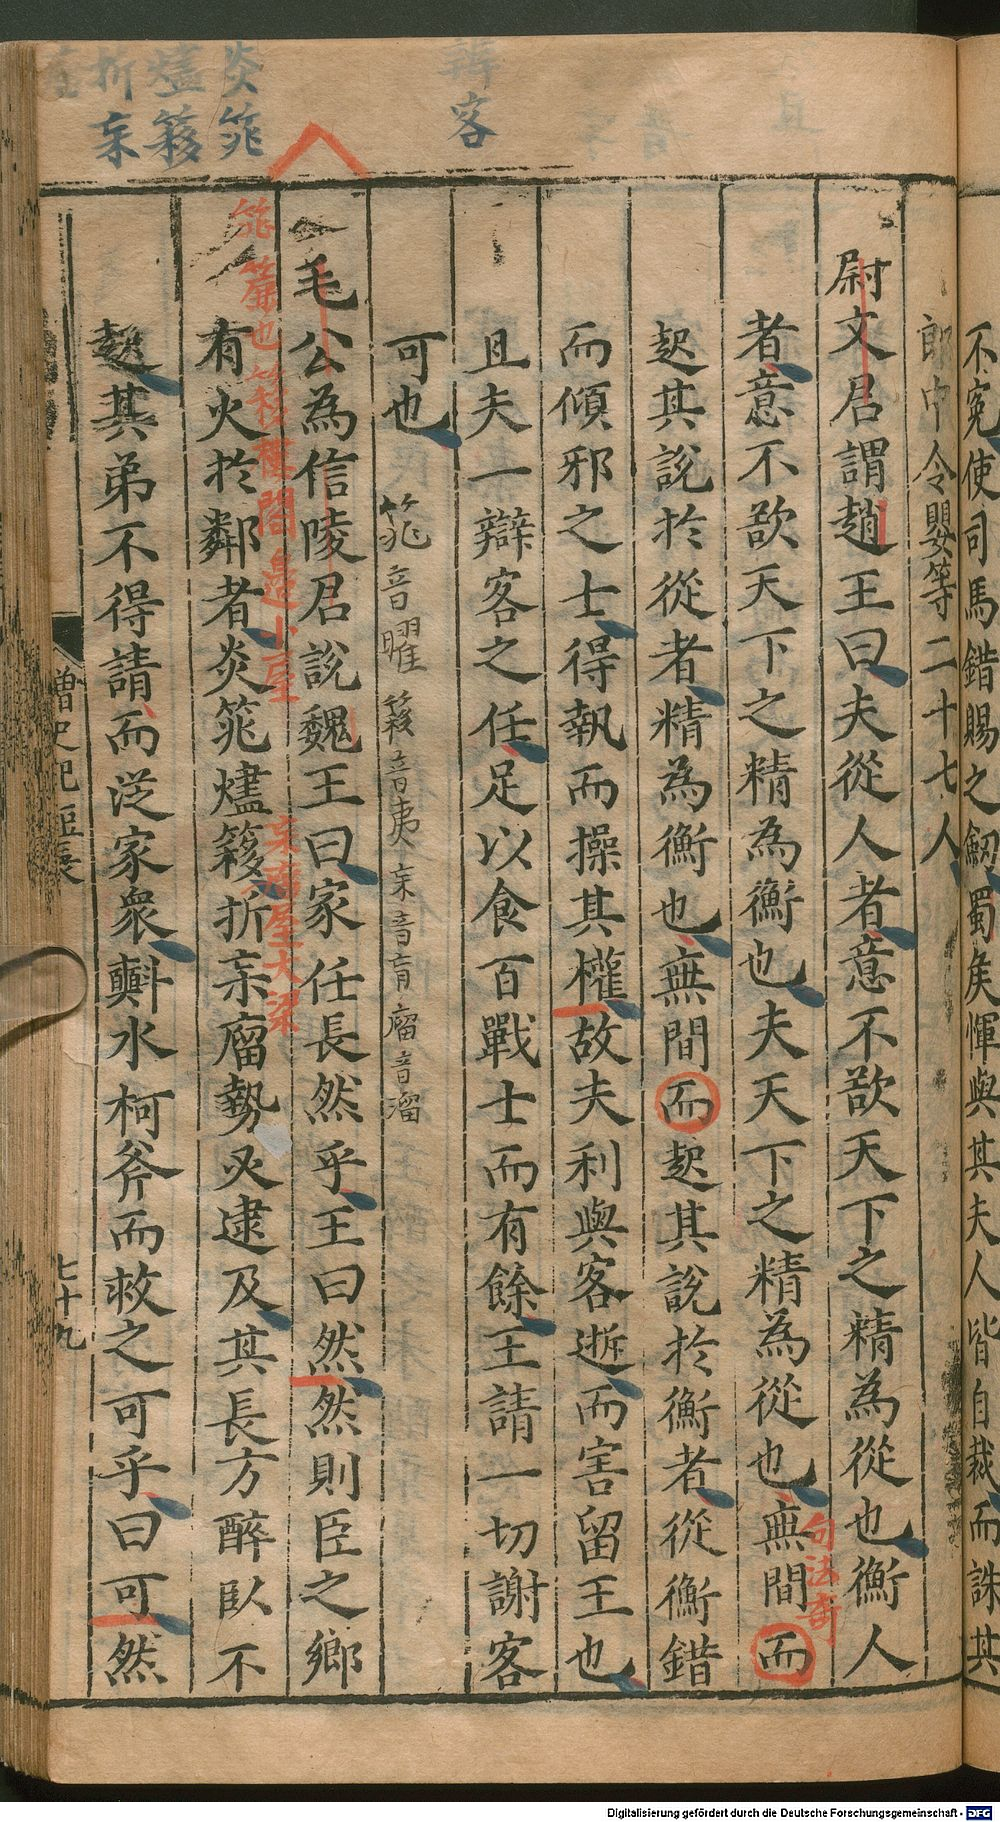 不冤使司馬錯賜之劒蜀矦惲與其夫人皆自裁而誅其
郎中令嬰等二十七人
尉文君謂趙王曰夫從人者意不欲天下之精為從也衡人
者意不欲天下之精為衡也夫天下之精為從也無間而
起其說於從者精為衡也無間而起其說於衡者從衡錯
而傾邪之士得執而操其權故夫利與客逝而害留王也
且夫一辯客之任足以食百戰士而有餘王請一切謝客
可也 筄音曜 簃音夷 㡃音肓 廇音溜
毛公為信陵君說魏王曰家任長然乎王曰然然則臣之鄉
有火於鄰者炎筄燼簃折㡃廇勢必逮及其長方醉臥不
起其弟不得請而泛家衆㪺水柯斧而救之可乎曰可然
句法奇
筄簾也簃樓閣邊小屋
㡃廇屋大梁
辨客
炎筄
燼簃
折㡃
增史記短長
七十九
Digitalisierung gefördert durch die Deutsche Forschungsgemeinschaft - DFG